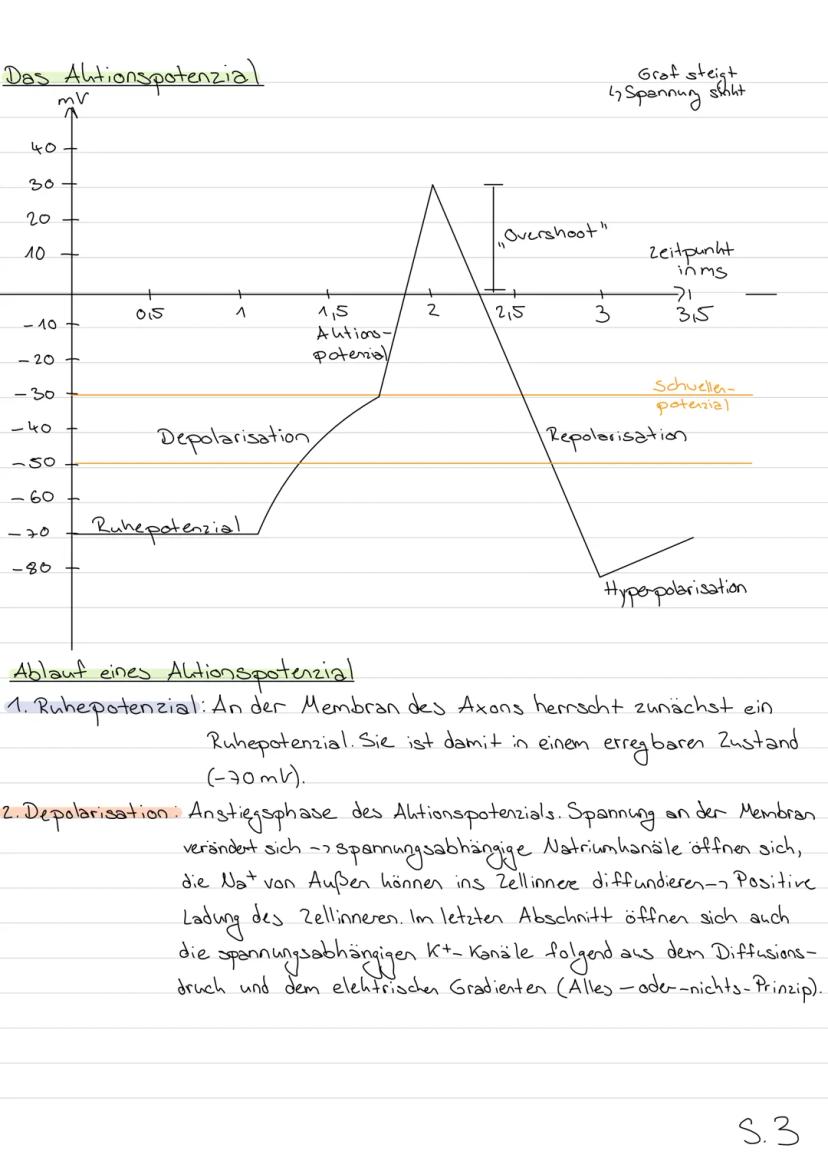 Das Aktionspotenzial
Graf steigt
↳ Spannung sinkt
mV
40
30
20
10
-10
-20
-30
-40
-50
-60
-70
-80
„Overshoot"
Zeitpunkt
in ms
0,5
1
1,5
2
2,5
3
3,5
Aktions-
potenzial
Schwellen-
potenzial
Depolarisation
Repolarisation
Ruhepotenzial
Hyperpolarisation
Ablauf eines Aktionspotenzial
1. Ruhepotenzial: An der Membran des Axons herrscht zunächst ein
Ruhepotenzial. Sie ist damit in einem erregbaren Zustand
(-70 mV).
2. Depolarisation: Anstiegsphase des Aktionspotenzials. Spannung an der Membran
verändert sich -> spannungsabhängige Natriumkanäle öffnen sich,
die Na⁺ von Außen können ins Zellinnere diffundieren -> Positive
Ladung des Zellinneren. Im letzten Abschnitt öffnen sich auch
die spannungsabhängigen K+- Kanäle folgend aus dem Diffusions-
druck und dem elektrischen Gradienten (Alles-oder-nichts-Prinzip).
S. 3